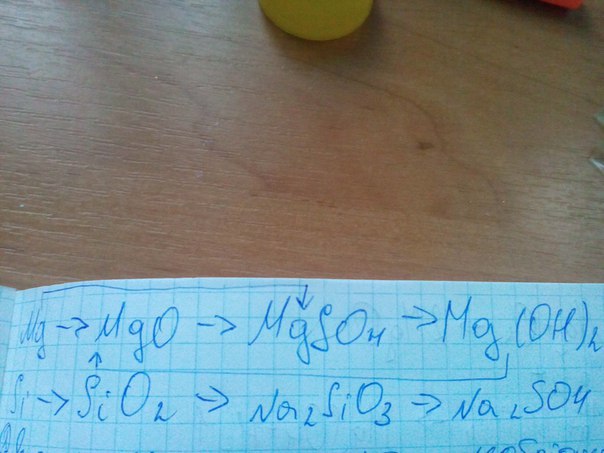 Mg → MgO → MgSO4 → Mg(OH)2
Si → SiO2 → Na2SiO3 → Na2SO4